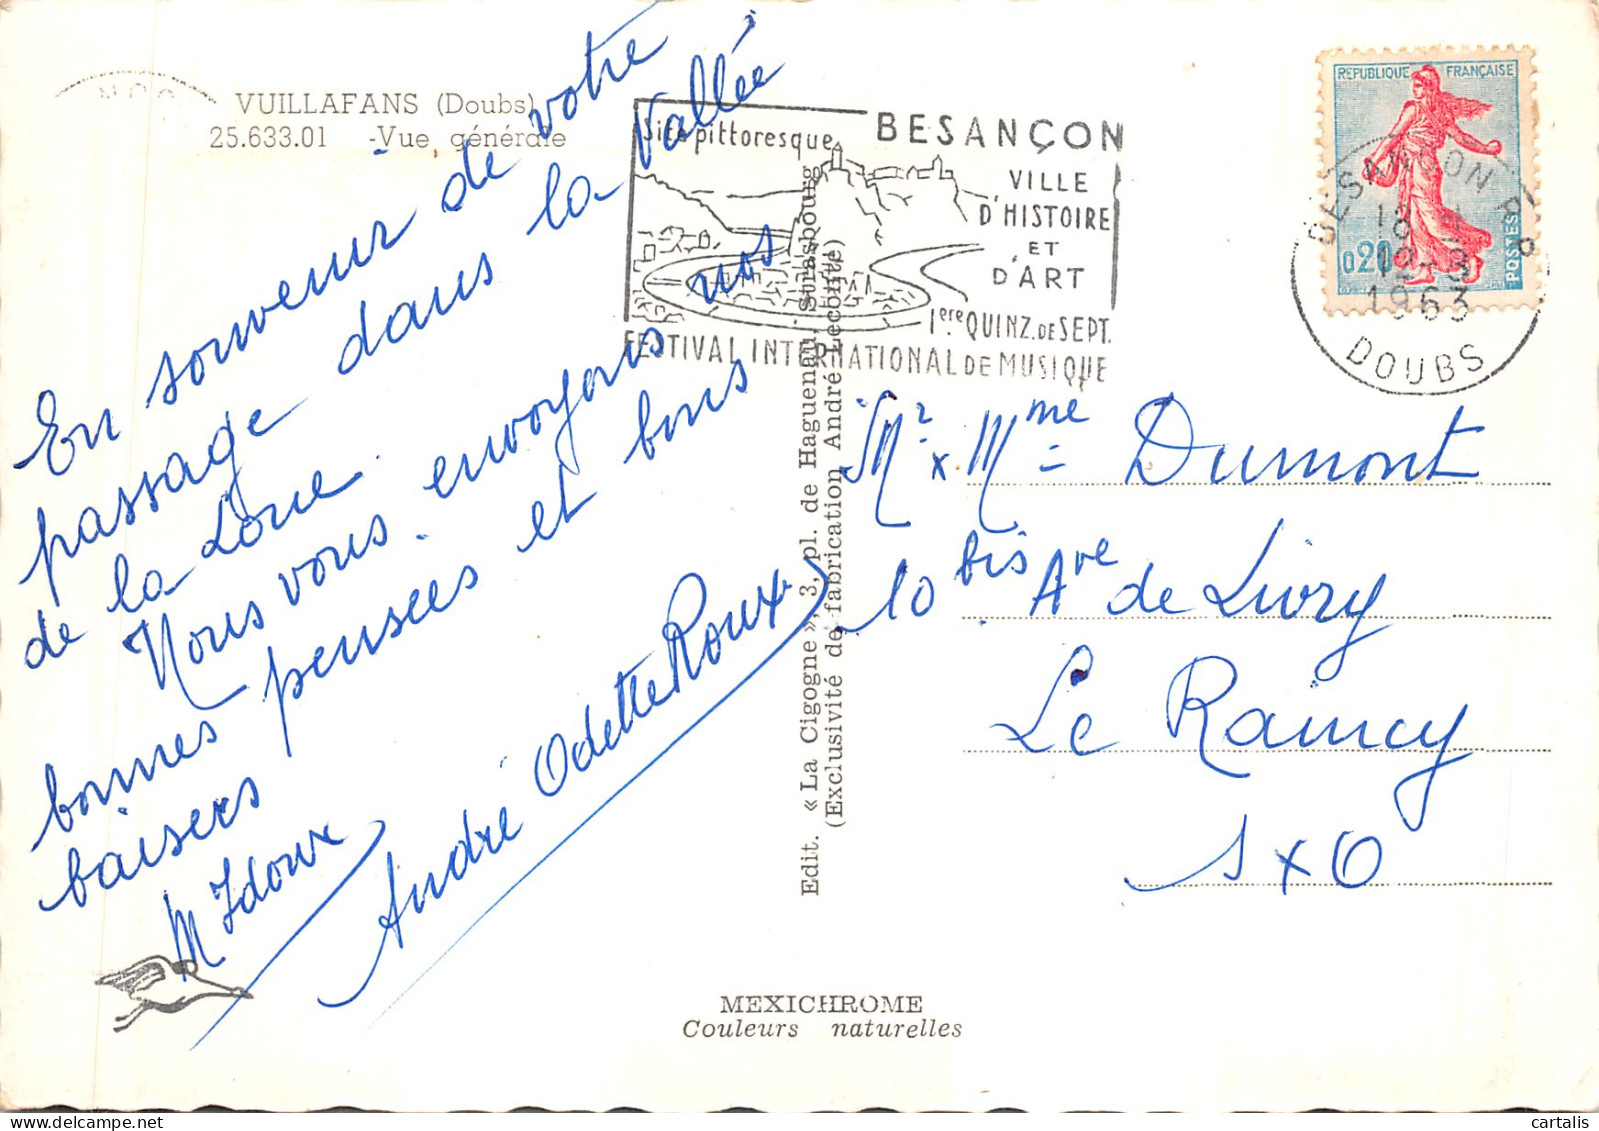 VUILLAFANS (Doubs)
25.633.01 -Vue générale
En souvenir de votre
passage dans la Vallée
de la Loue.
Nous vous envoyons nos
bonnes pensées et bons
baisers
André Odette Roux
Site pittoresque
BESANÇON
VILLE
D'HISTOIRE
ET
D'ART
1ere QUINZ. DE SEPT.
FESTIVAL INTERNATIONAL DE MUSIQUE
REPUBLIQUE FRANÇAISE
0,20
POSTES
BESANCON R.P.
1963
DOUBS
Edit. « La Cigogne », 3, pl. de Haguenau, Strasbourg
(Exclusivité de fabrication André Leconte)
Mr x Mme Dumont
10 bis Ave de Livry
Le Raincy
S x O
MEXICHROME
Couleurs naturelles
cartalis